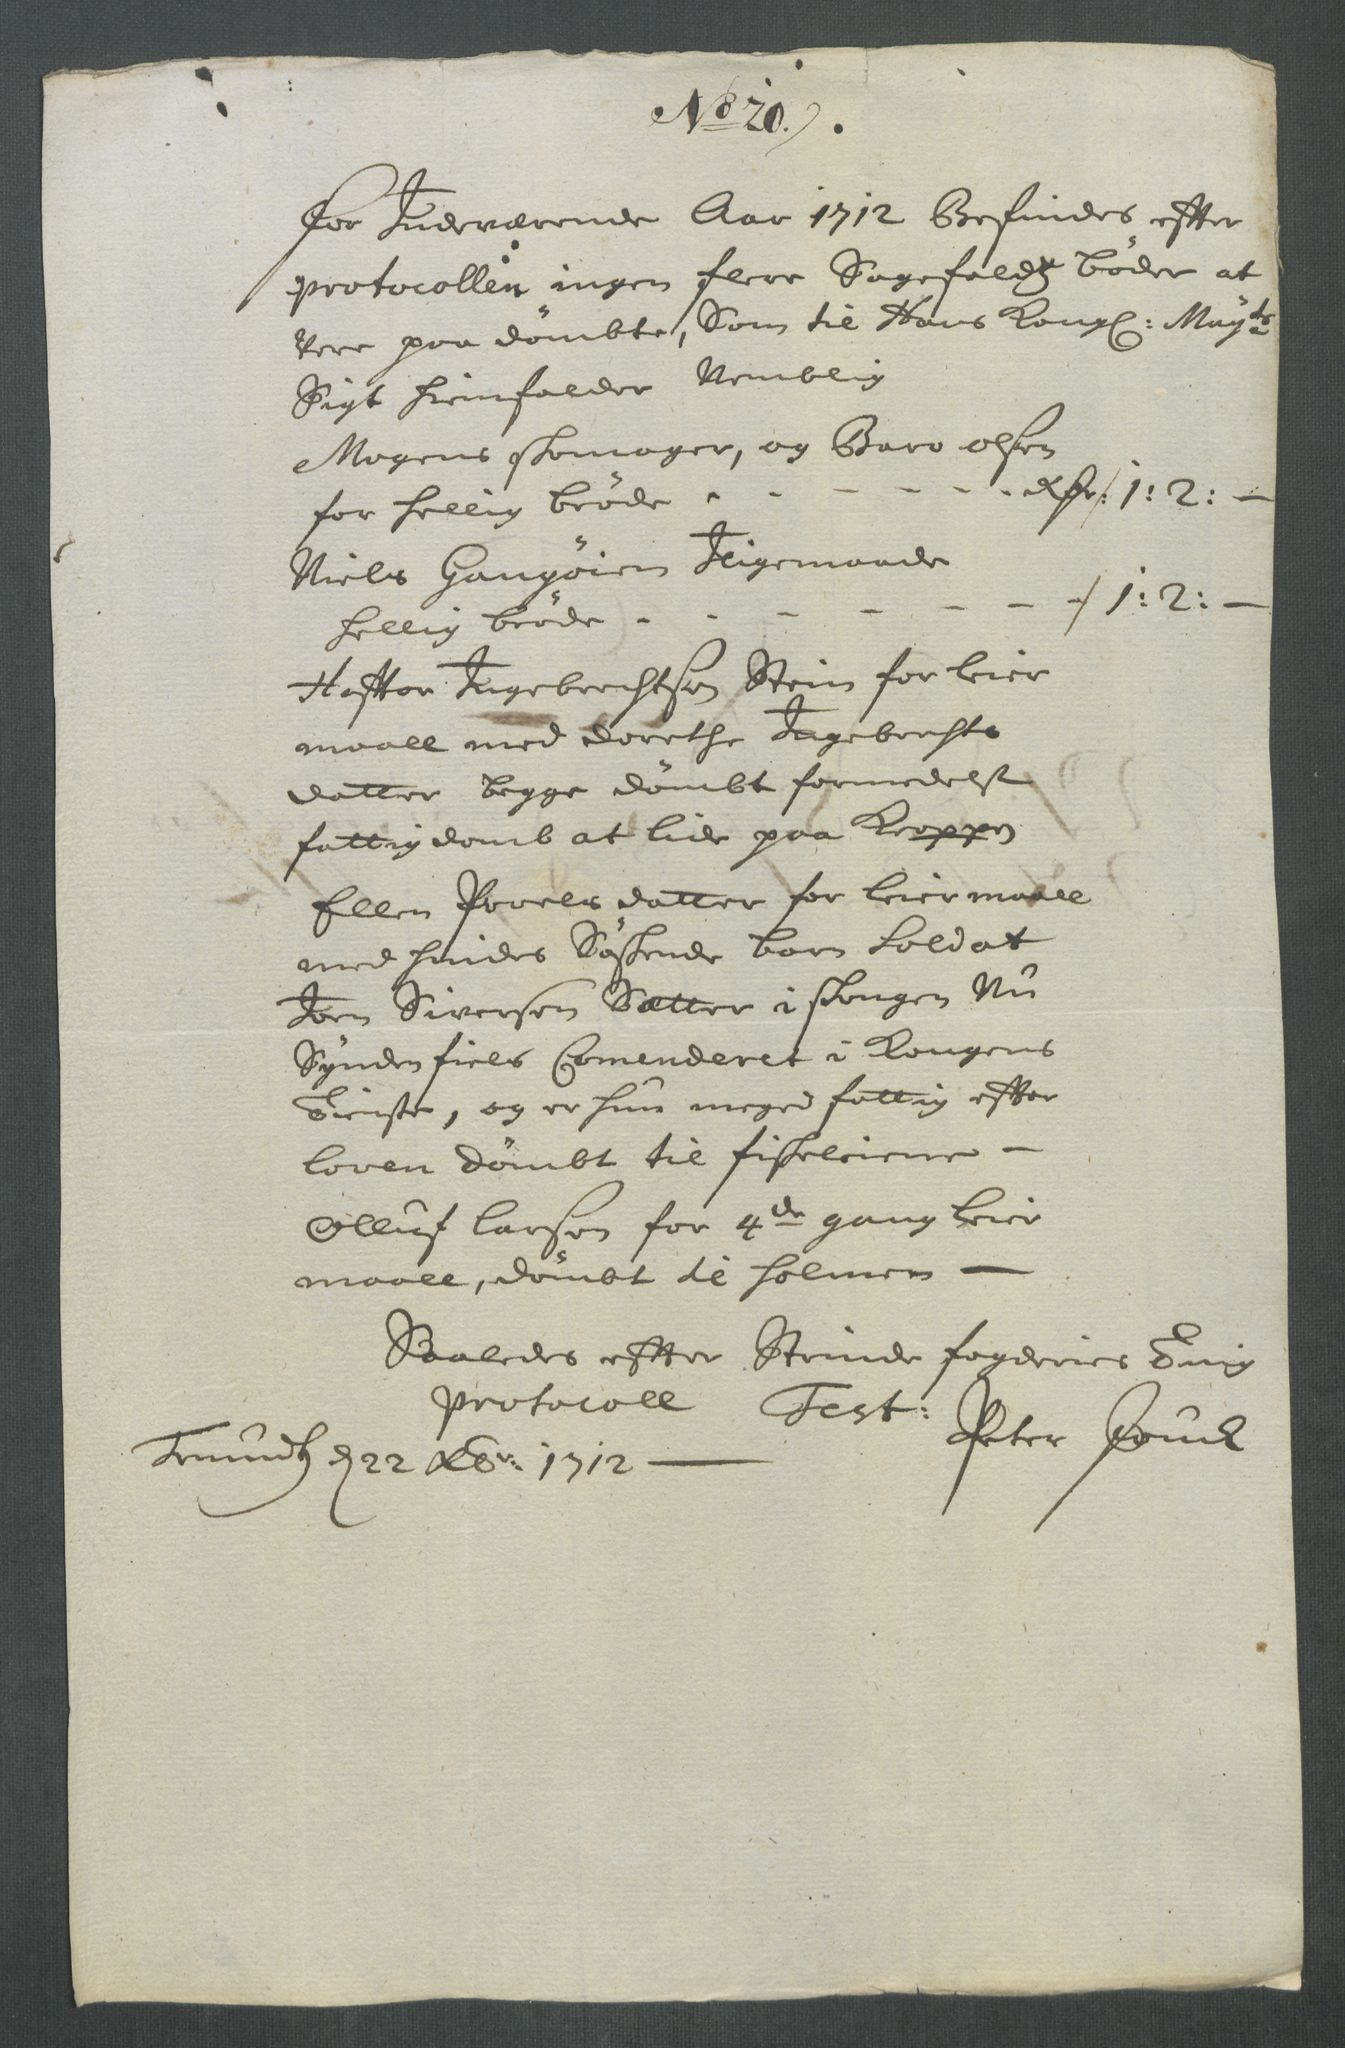 No 20.
for Indeværende Aar 1712 Befindes effter
protocollen ingen flere Sagefaldz böder at
vere paa dömbte, Som til Hans Kongl: Mayts
Sigt hiemfalder Nemblig
Mogens skomager, og Baro olsen
for hellig bröde - - - - - - Rdr: 1: 2: -
Niels Gangöien Iligemaade
hellig bröde - - - - - - - 1: 2: -
Hafftor Ingebrechtsen Stein for leier
maall med dorethe Ingebrechts
datter begge dömbt formedelst
fattigdomb at lide paa Kroppen
Ellen Povels datter for leiermaall
med hindes Söskende barn Soldat
Joen Siversen Sætter i skougen Nu
Synden fields Comenderet i Kongens
Tieniste, og er hun meged fattig effter
loven dömbt til fiskeleierne -
Olluf larsen for 4de gang leier
maall, dömbt til holmen -
Saaledes effter Strinde fogderies Ting
protocoll Test:
Peter
Trundh d 22 Xbr: 1712